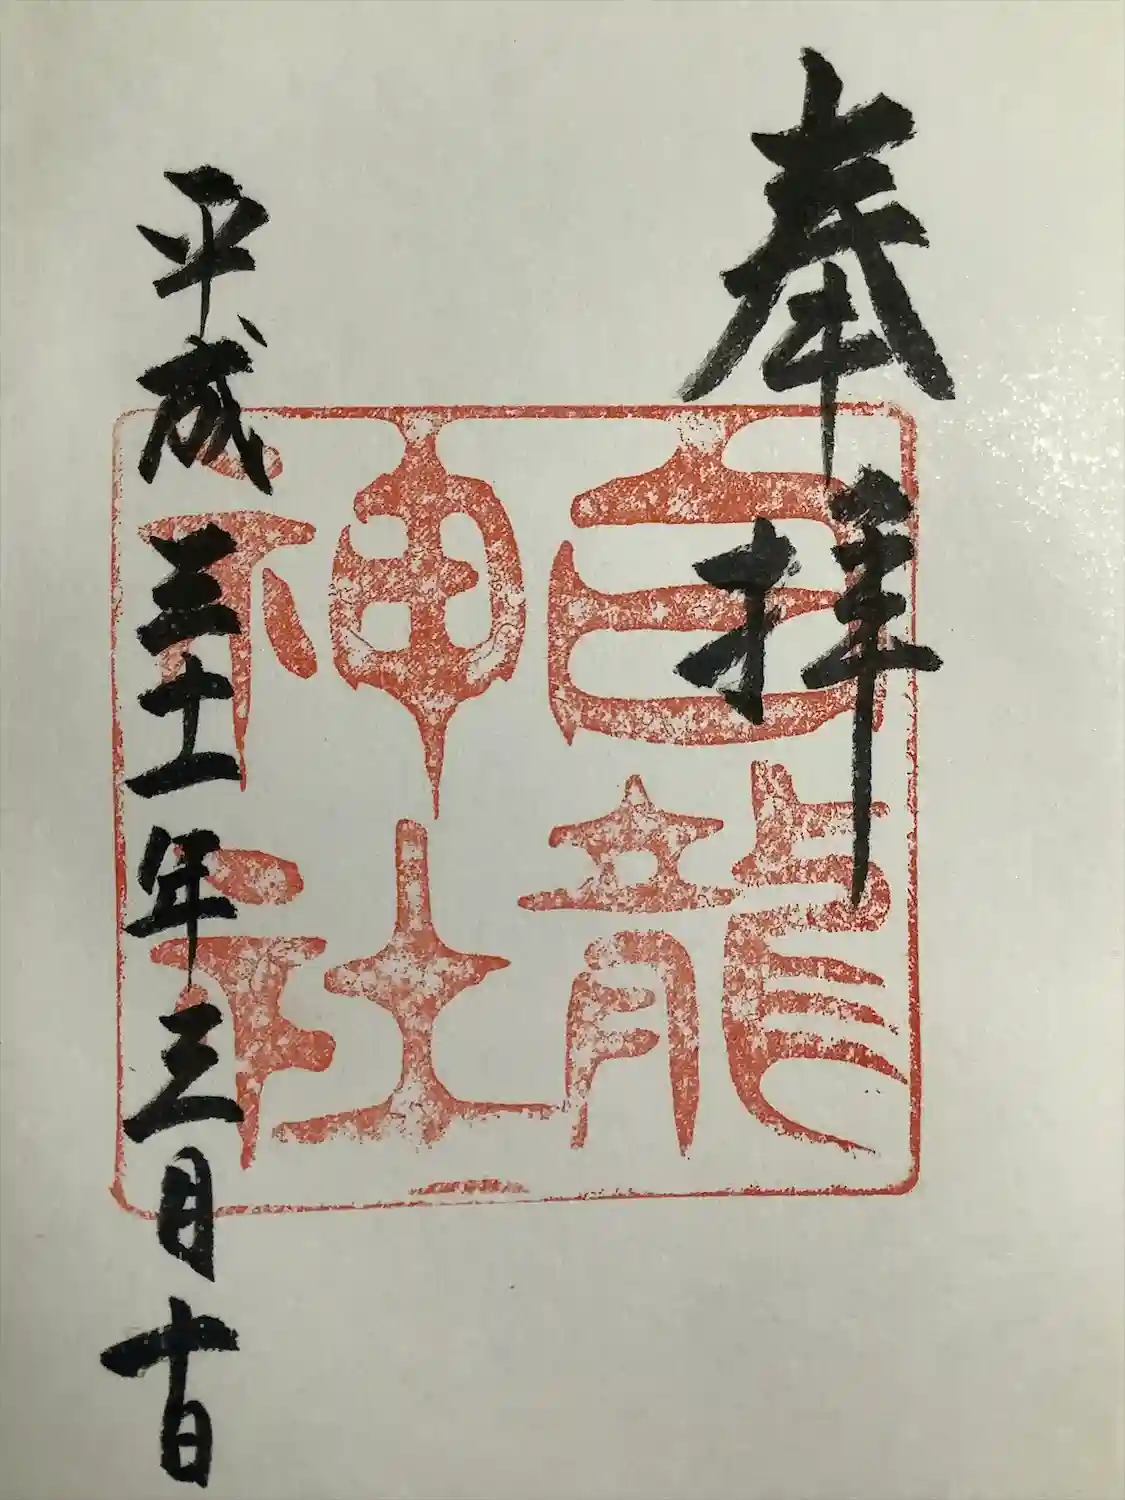 奉拝
白龍神社
平成三十一年三月十日